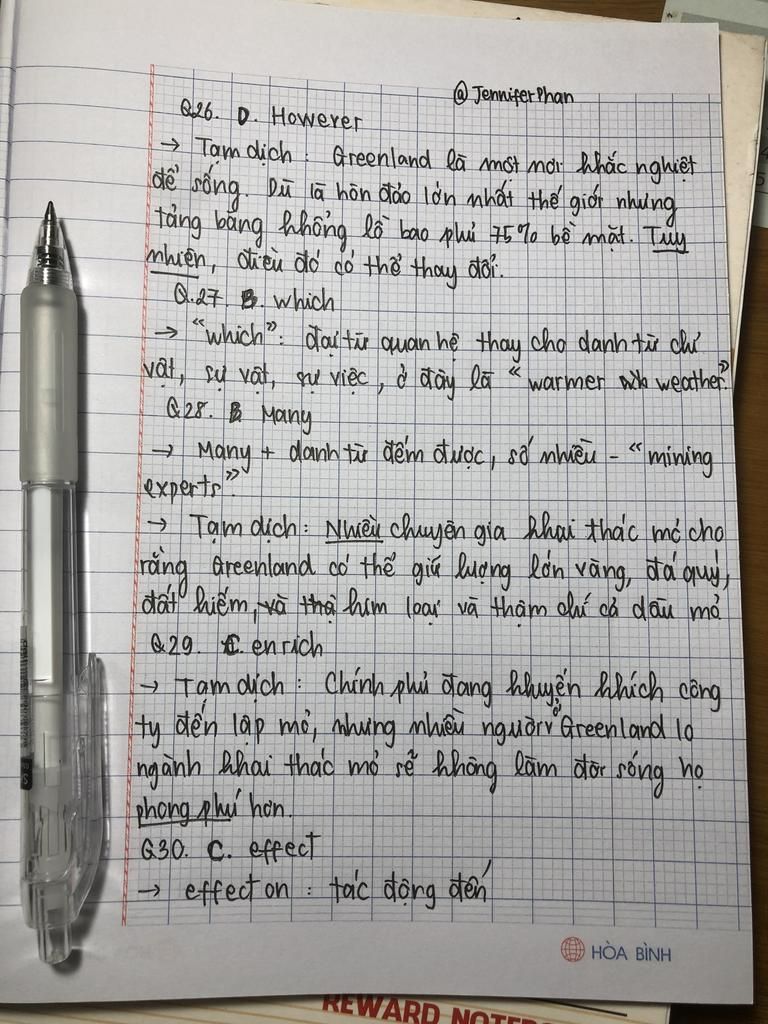 @JenniferPhan
Q26. D. However
→ Tạm dịch : Greenland là một nơi khắc nghiệt
để sống. Dù là hòn đảo lớn nhất thế giới nhưng
tảng băng khổng lồ bao phủ 75% bề mặt. Tuy
nhiên, điều đó có thể thay đổi.
Q.27. B. which
→ "which": đại từ quan hệ thay cho danh từ chỉ
vật, sự vật, sự việc, ở đây là "warmer weather"
Q28. B Many
→ Many + danh từ đếm được, số nhiều - "mining
experts".
→ Tạm dịch : Nhiều chuyên gia khai thác mỏ cho
rằng Greenland có thể giữ lượng lớn vàng, đá quý,
đất hiếm, kim loại và thậm chí cả dầu mỏ
Q29. C. enrich
→ Tạm dịch : Chính phủ đang khuyến khích công
ty đến lập mỏ, nhưng nhiều người ở Greenland lo
ngành khai thác mỏ sẽ không làm đời sống họ
phong phú hơn.
Q30. C. effect
→ effect on : tác động đến
HÒA BÌNH